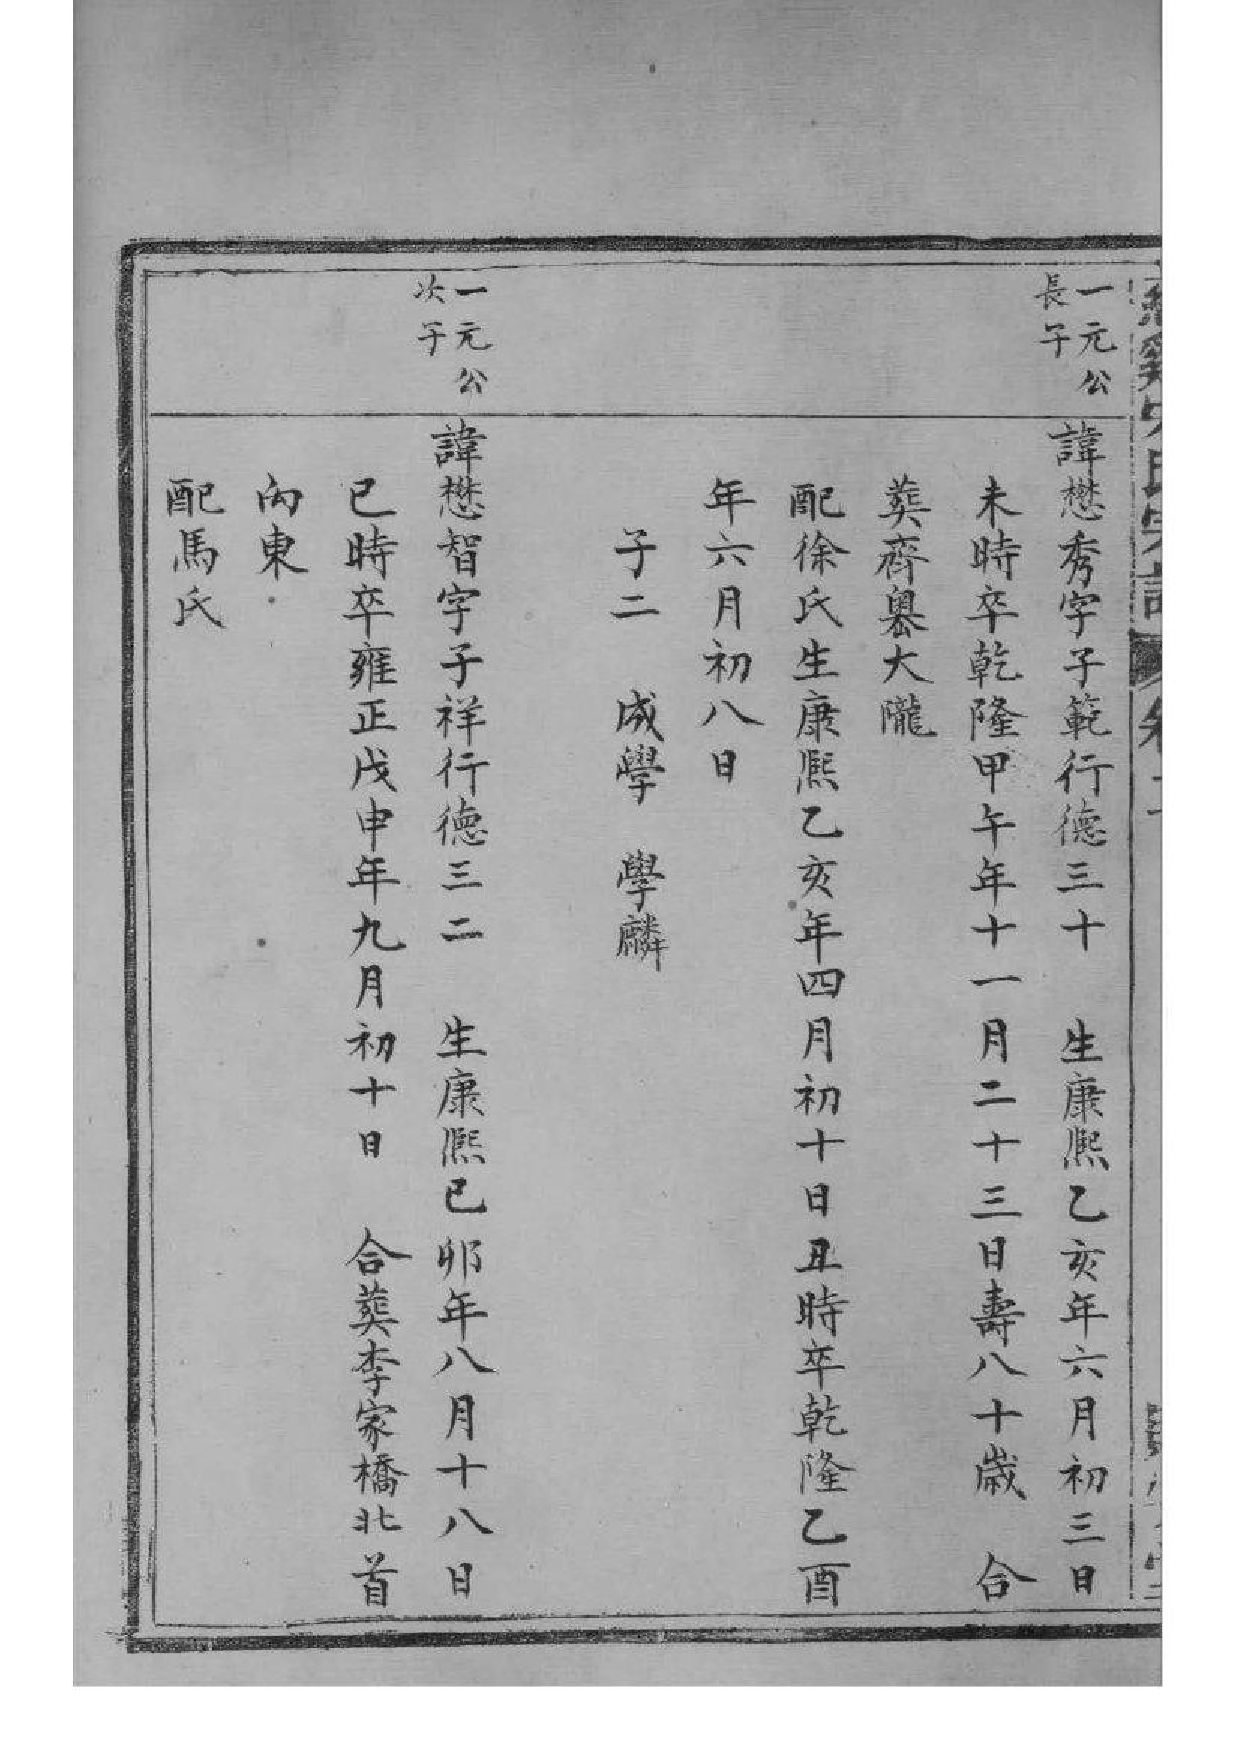 一元公
長子
諱懋秀字子範行德三十　生康熙乙亥年六月初三日
未時卒乾隆甲午年十一月二十三日壽八十歲　合
葬齊㠗大隴
配徐氏生康熙乙亥年四月初十日丑時卒乾隆乙酉
年六月初八日
子二　成學　學麟
一元公
次子
諱懋智字子祥行德三二　生康熙已卯年八月十八日
巳時卒雍正戊申年九月初十日　合葬李家橋北首
內東
配馬氏